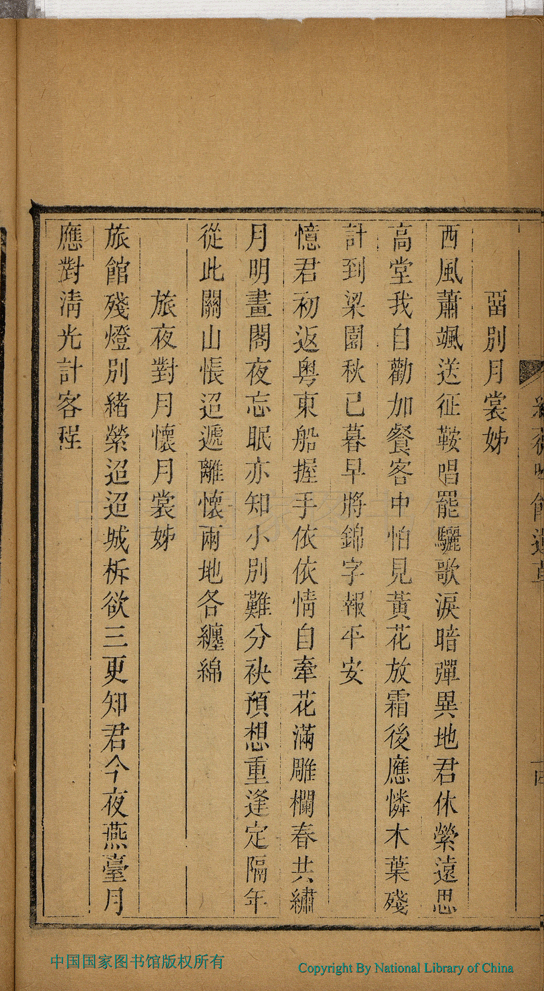 畱別月裳姊
西風蕭颯送征鞍唱罷驪歌淚暗彈異地君休縈遠思
高堂我自勸加餐客中怕見黃花放霜後應憐木葉殘
計到梁園秋已暮早將錦字報平安
憶君初返粵東船握手依依情自牽花滿雕欄春共繡
月明畫閣夜忘眠亦知小別難分袂預想重逢定隔年
從此關山悵迢遞離懷兩地各纏綿
旅夜對月懷月裳姊
旅館殘燈別緒縈迢迢城柝欲三更知君今夜燕臺月
應對淸光計客程
中国国家图书馆版权所有
Copyright By National Library of China